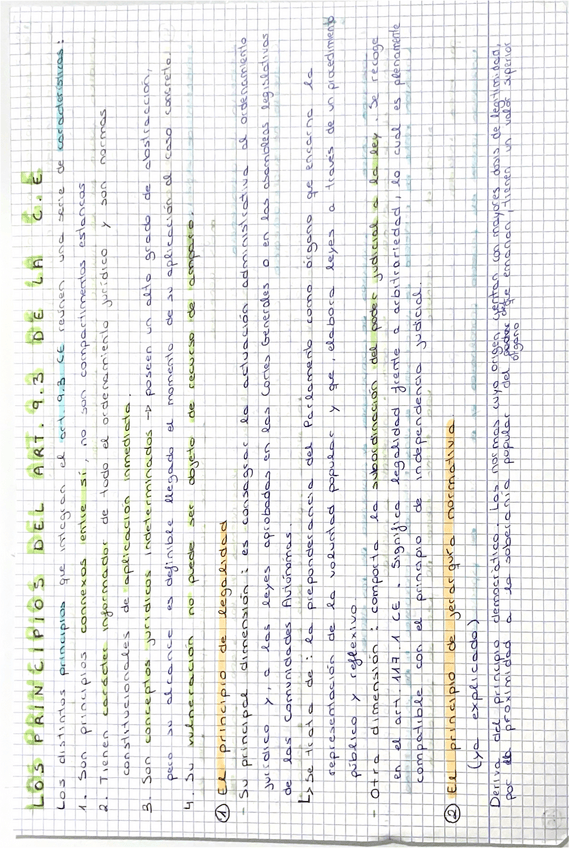 LOS PRINCIPIOS DEL ART. 9.3 DE LA C.E
Los distintos principios que integran el art. 9.3 CE reúnen una serie de características:
1. Son principios connexos entre sí, no son compartimentos estancos
2. Tienen carácter informador de todo el ordenamiento jurídico y son normas
constitucionales de aplicación inmediata.
3. Son conceptos jurídicos indeterminados → poseen un alto grado de abstracción,
pero su alcance es definible llegado el momento de su aplicación al caso concreto.
4. Su vulneración no puede ser objeto de recurso de amparo.
① El principio de legalidad
- Su principal dimensión: es consagrar la actuación administrativa al ordenamiento
jurídico y, a las leyes aprobadas en las Cortes Generales o en las asambleas legislativas
de las Comunidades Autónomas.
↳ Se trata de: la preponderancia del Parlamento como órgano que encarna la
representación de la voluntad popular y que elabora leyes a través de un procedimiento
público y reflexivo
- Otra dimensión: comporta la subordinación del poder judicial a la ley. Se recoge
en el art. 117.1 CE. Significa legalidad frente a arbitrariedad, lo cual es plenamente
compatible con el principio de independencia judicial.
② El principio de jerarquía normativa
(ya explicado)
Deriva del principio democrático. Las normas cuyo origen cuentan con mayores dosis de legitimidad,
por proximidad a la soberanía popular del órgano que emanan, tienen un valor superior